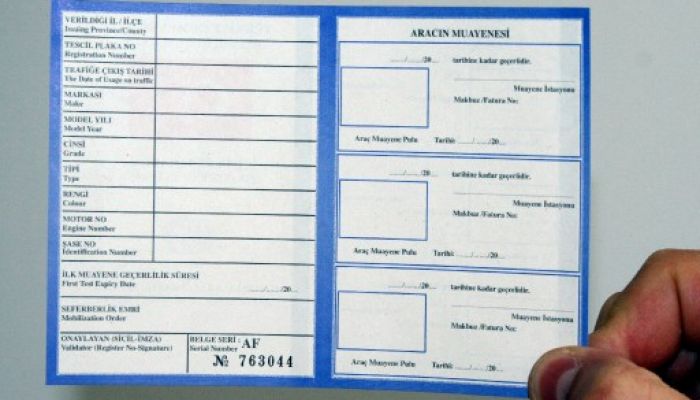 VERİLDİĞİ İL / İLÇE
Issuing Province/County
TESCİL PLAKA NO
Registration Number
TRAFİĞE ÇIKIŞ TARİHİ
The Date of Usage on traffic
MARKASI
Make
MODEL YILI
Model Year
CİNSİ
Grade
TİPİ
Type
RENGİ
Colour
MOTOR NO
Engine Number
ŞASE NO
Identification Number
İLK MUAYENE GEÇERLİLİK SÜRESİ
First Test Expiry Date ...../...../20...
SEFERBERLİK EMRİ
Mobilization Order
ONAYLAYAN (SİCİL-İMZA)
Validator (Register No-Signature)
BELGE SERİ : AF
Serial Number
№ 763044
ARACIN MUAYENESİ
...../...../20... tarihine kadar geçerlidir.
Muayene İstasyonu
Makbuz /Fatura No:
Araç Muayene Pulu Tarihi:...../...../20...
...../...../20... tarihine kadar geçerlidir.
Muayene İstasyonu
Makbuz /Fatura No:
Araç Muayene Pulu Tarihi:...../...../20...
...../...../20... tarihine kadar geçerlidir.
Muayene İstasyonu
Makbuz /Fatura No:
Araç Muayene Pulu Tarihi:...../...../20...